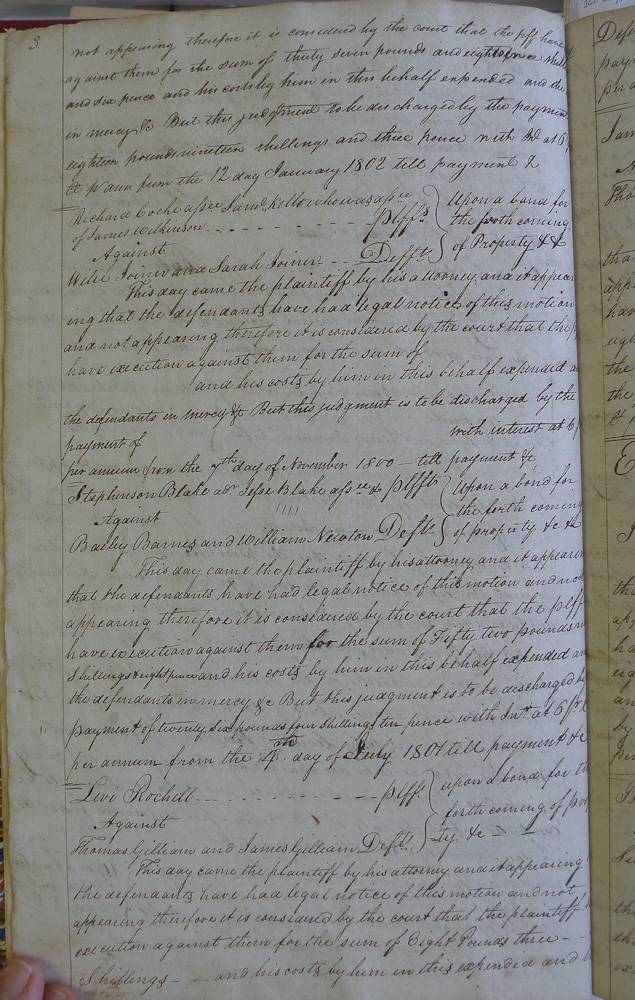 3.
not appearing therefore it is considered by the court that the plff have
against them for the sum of thirty seven pounds and
and six pence and his costs by him in this behalf expended and the
in mercy &c But this judgment to be discharged by the payment
eighteen pounds nineteen shillings and three pence with Int at 6
from the 12 day January 1802 till payment &
Richard Cocke assee Saml Kello who was assee
of James Wilkinson - - - - - - - plffs
Against
Wilie Joiner and Sarah Joiner - - - Defts
Upon a bond for
the forth coming
of Property &c
This day came the plaintiff by his attorney and it appear
ing that the defendants have had legal notice of this motion
and not appearing therefore it is considered by the court that the
have execution against them for the sum of
and his costs by him in this behalf expended
the defendants in mercy &c But this judgment is to be discharged by the
payment of with interest at 6
per annum from the 7th day of November 1800 - till payment &c
Stephenson Blake Jesse Blake assee & plffs
Against
Bailey Barnes and William Newton Defts
Upon a bond for
the forth coming
of property &c
This day came the plaintiff by his attorney and it appearin
that the defendants have had legal notice of this motion and not
appearing therefore it is considered by the court that the plff
have execution against them for the sum of Fifty two pounds
Shillings & eight pence and his costs by him in this behalf expended an
the defendants in mercy &c But this judgment is to be discharged b
payment of twenty six pounds four shillings ten pence with Int at 6 pr
per annum from the 4th day of July 1801 till payment &c
Levi Rochell - - - - - - - - plff
Against
Thomas Gilliam and James Gilliam Defts
upon a bond for th
forth coming of prop
ty &c - -
This day came the plaintiff by his attorney and it appearing
the defendants have had legal notice of this motion and not
appearing therefore it is considered by the court that the plaintiff
execution against them for the sum of Eight Pounds three -
Shillings - and his costs by him in this expended and